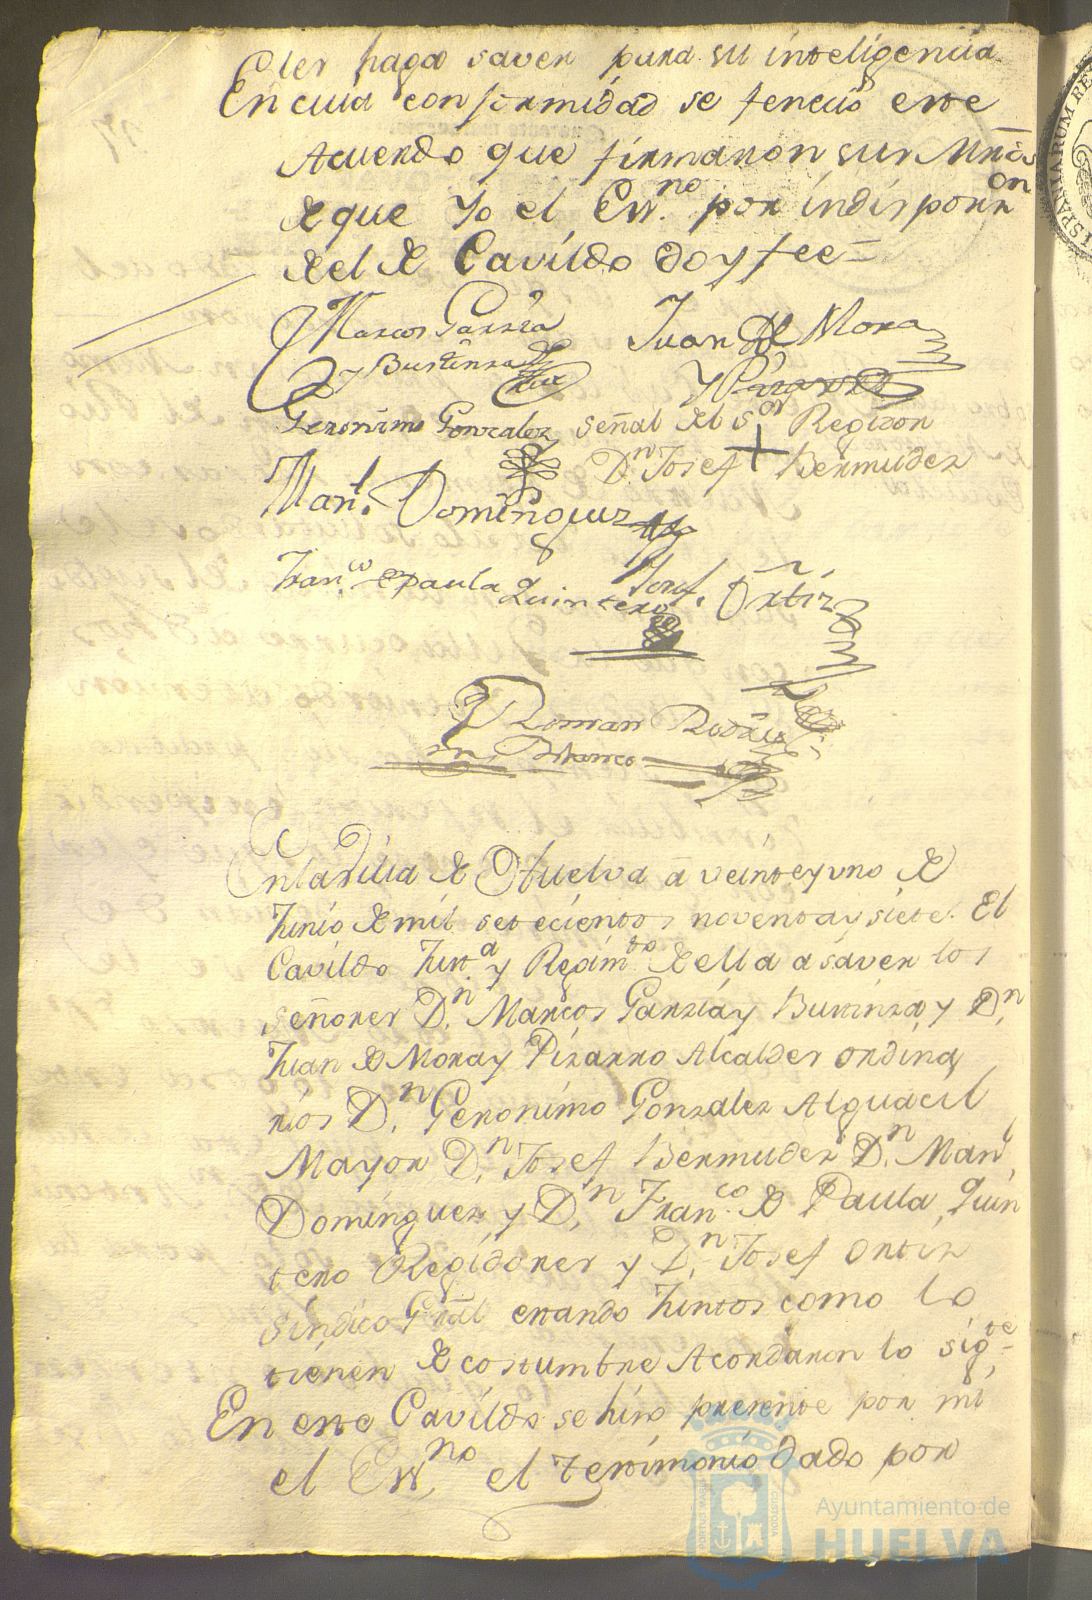 les haga saver para su inteligencia
En cuia conformidad se fenecio este
Acuerdo que firmaron sus Mrds
de que Yo el Essno por indisposson
del de Cavildo doy fee=
Marcos Garzia Juan de Mora
y Bustinza y Pizarro
Geronimo Gonzalez señal del Sor Regidor
Dn Josef + Bermudez
Manl. Dominguez
Franco de paula Quintero Josef. Ortiz
Roman Rodrigz
Blanco
En la Villa de Huelva a veinte y uno de
Junio de mil setecientos noventa y siete. El
Cavildo Justa y Regimto de ella a saver los
señores Dn. Marcos Garzia y Bustinza, y Dn.
Juan de Mora y Pizarro Alcaldes ordina
rios Dn. Geronimo Gonzalez Alguacil
Mayor Dn. Josef Bermudez Dn. Manl.
Dominguez y Dn. Franco. de Paula Quin
tero Regidores y Dn. Josef Ortiz
Sindico Gral estando Juntos como lo
tienen de costumbre Acordaron lo sigte=
En este Cavildo se hizo presente por mi
el Essno el testimonio dado por
Ayuntamiento de
HUELVA